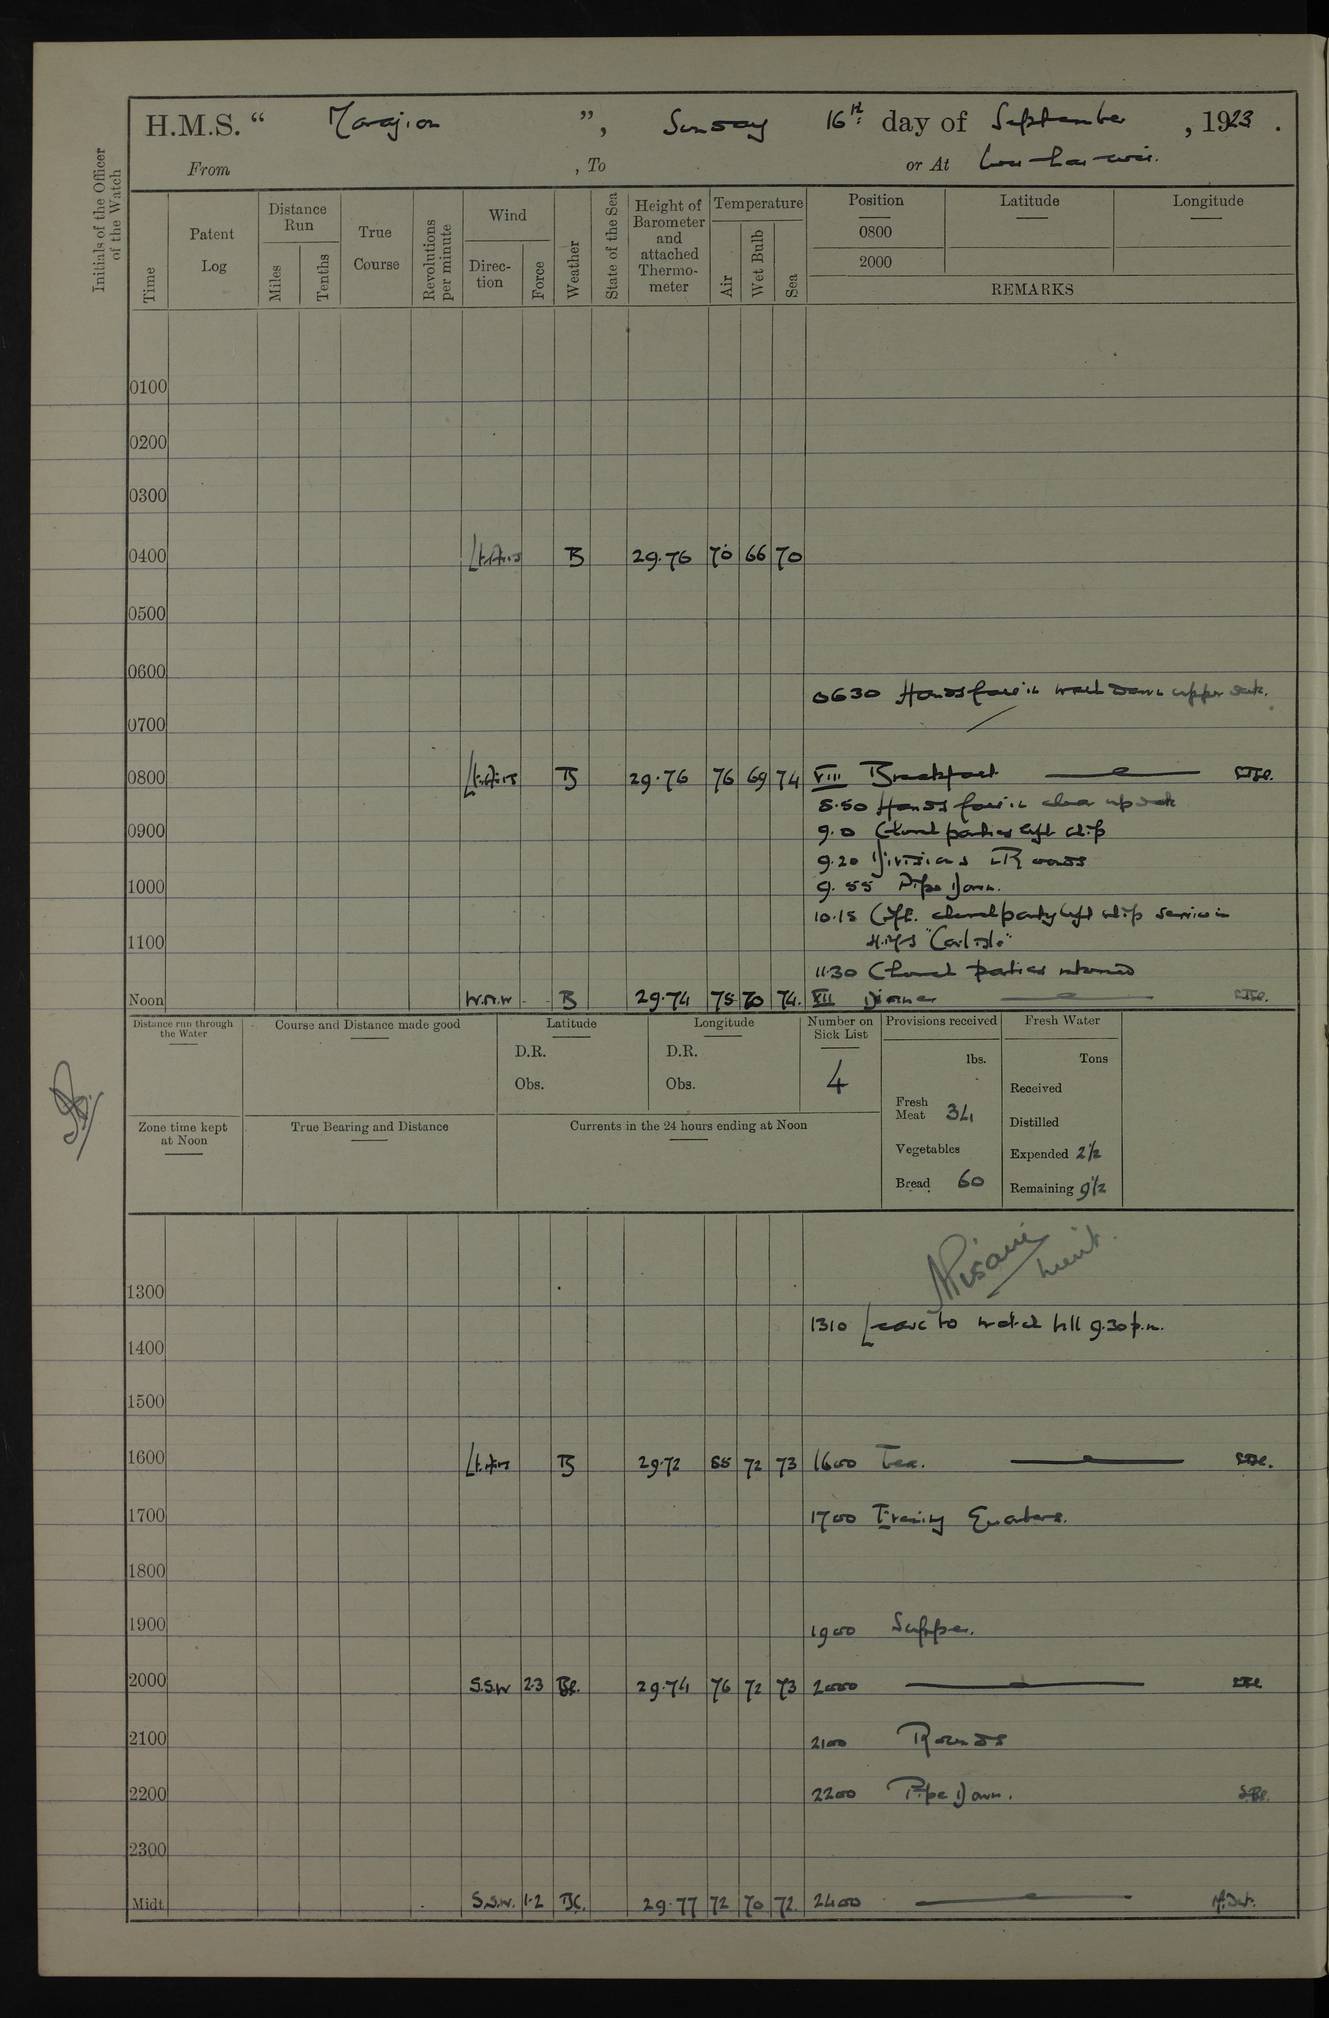 H.M.S. “ Marazion ”, Sunday 16th day of September, 1923.
From , To or At Wei-hai-wei.
Initials of the Officer of the Watch
Time
Patent Log
Distance Run
Miles
Tenths
True Course
Revolutions per minute
Wind
Direction
Force
Weather
State of the Sea
Height of Barometer and attached Thermometer
Temperature
Air
Wet Bulb
Sea
Position
0800
2000
Latitude
Longitude
REMARKS
0100
0200
0300
0400 Lt. Airs B 29.76 70 66 70
0500
0600
0630 Hands fall in wash down upper deck.
0700
0800 Lt. Airs B 29.76 76 69 74 VIII Breakfast
8.50 Hands fall in clear up deck
0900
9.0 Church parties left ship
9.20 Divisions & Rounds
1000
9.55 Pipe Down.
10.15 C of E. church party left ship service in
1100
H.M.S "Carlisle"
11.30 Church parties returned
Noon W.N.W - - B 29.74 75 70 74. XII Dinner
Distance run through the Water
Course and Distance made good
Latitude
D.R.
Obs.
Longitude
D.R.
Obs.
Number on Sick List
4
Provisions received
lbs.
Fresh Meat 34
Vegetables
Bread 60
Fresh Water
Tons
Received
Distilled
Expended 2½
Remaining 9½
Zone time kept at Noon
True Bearing and Distance
Currents in the 24 hours ending at Noon
1300
1310 Leave to watch till 9.30 p.m.
1400
1500
1600 Lt. Airs B 29.72 72 73 1600 Tea.
1700
1700 Evening Quarters.
1800
1900
1900 Supper.
2000 S.S.W 2.3 29.74 76 72 73 2000
2100
2100 Rounds
2200
2200 Pipe Down.
2300
Midt. S.S.W. 1-2 BC. 29.77 72 70 72. 2400